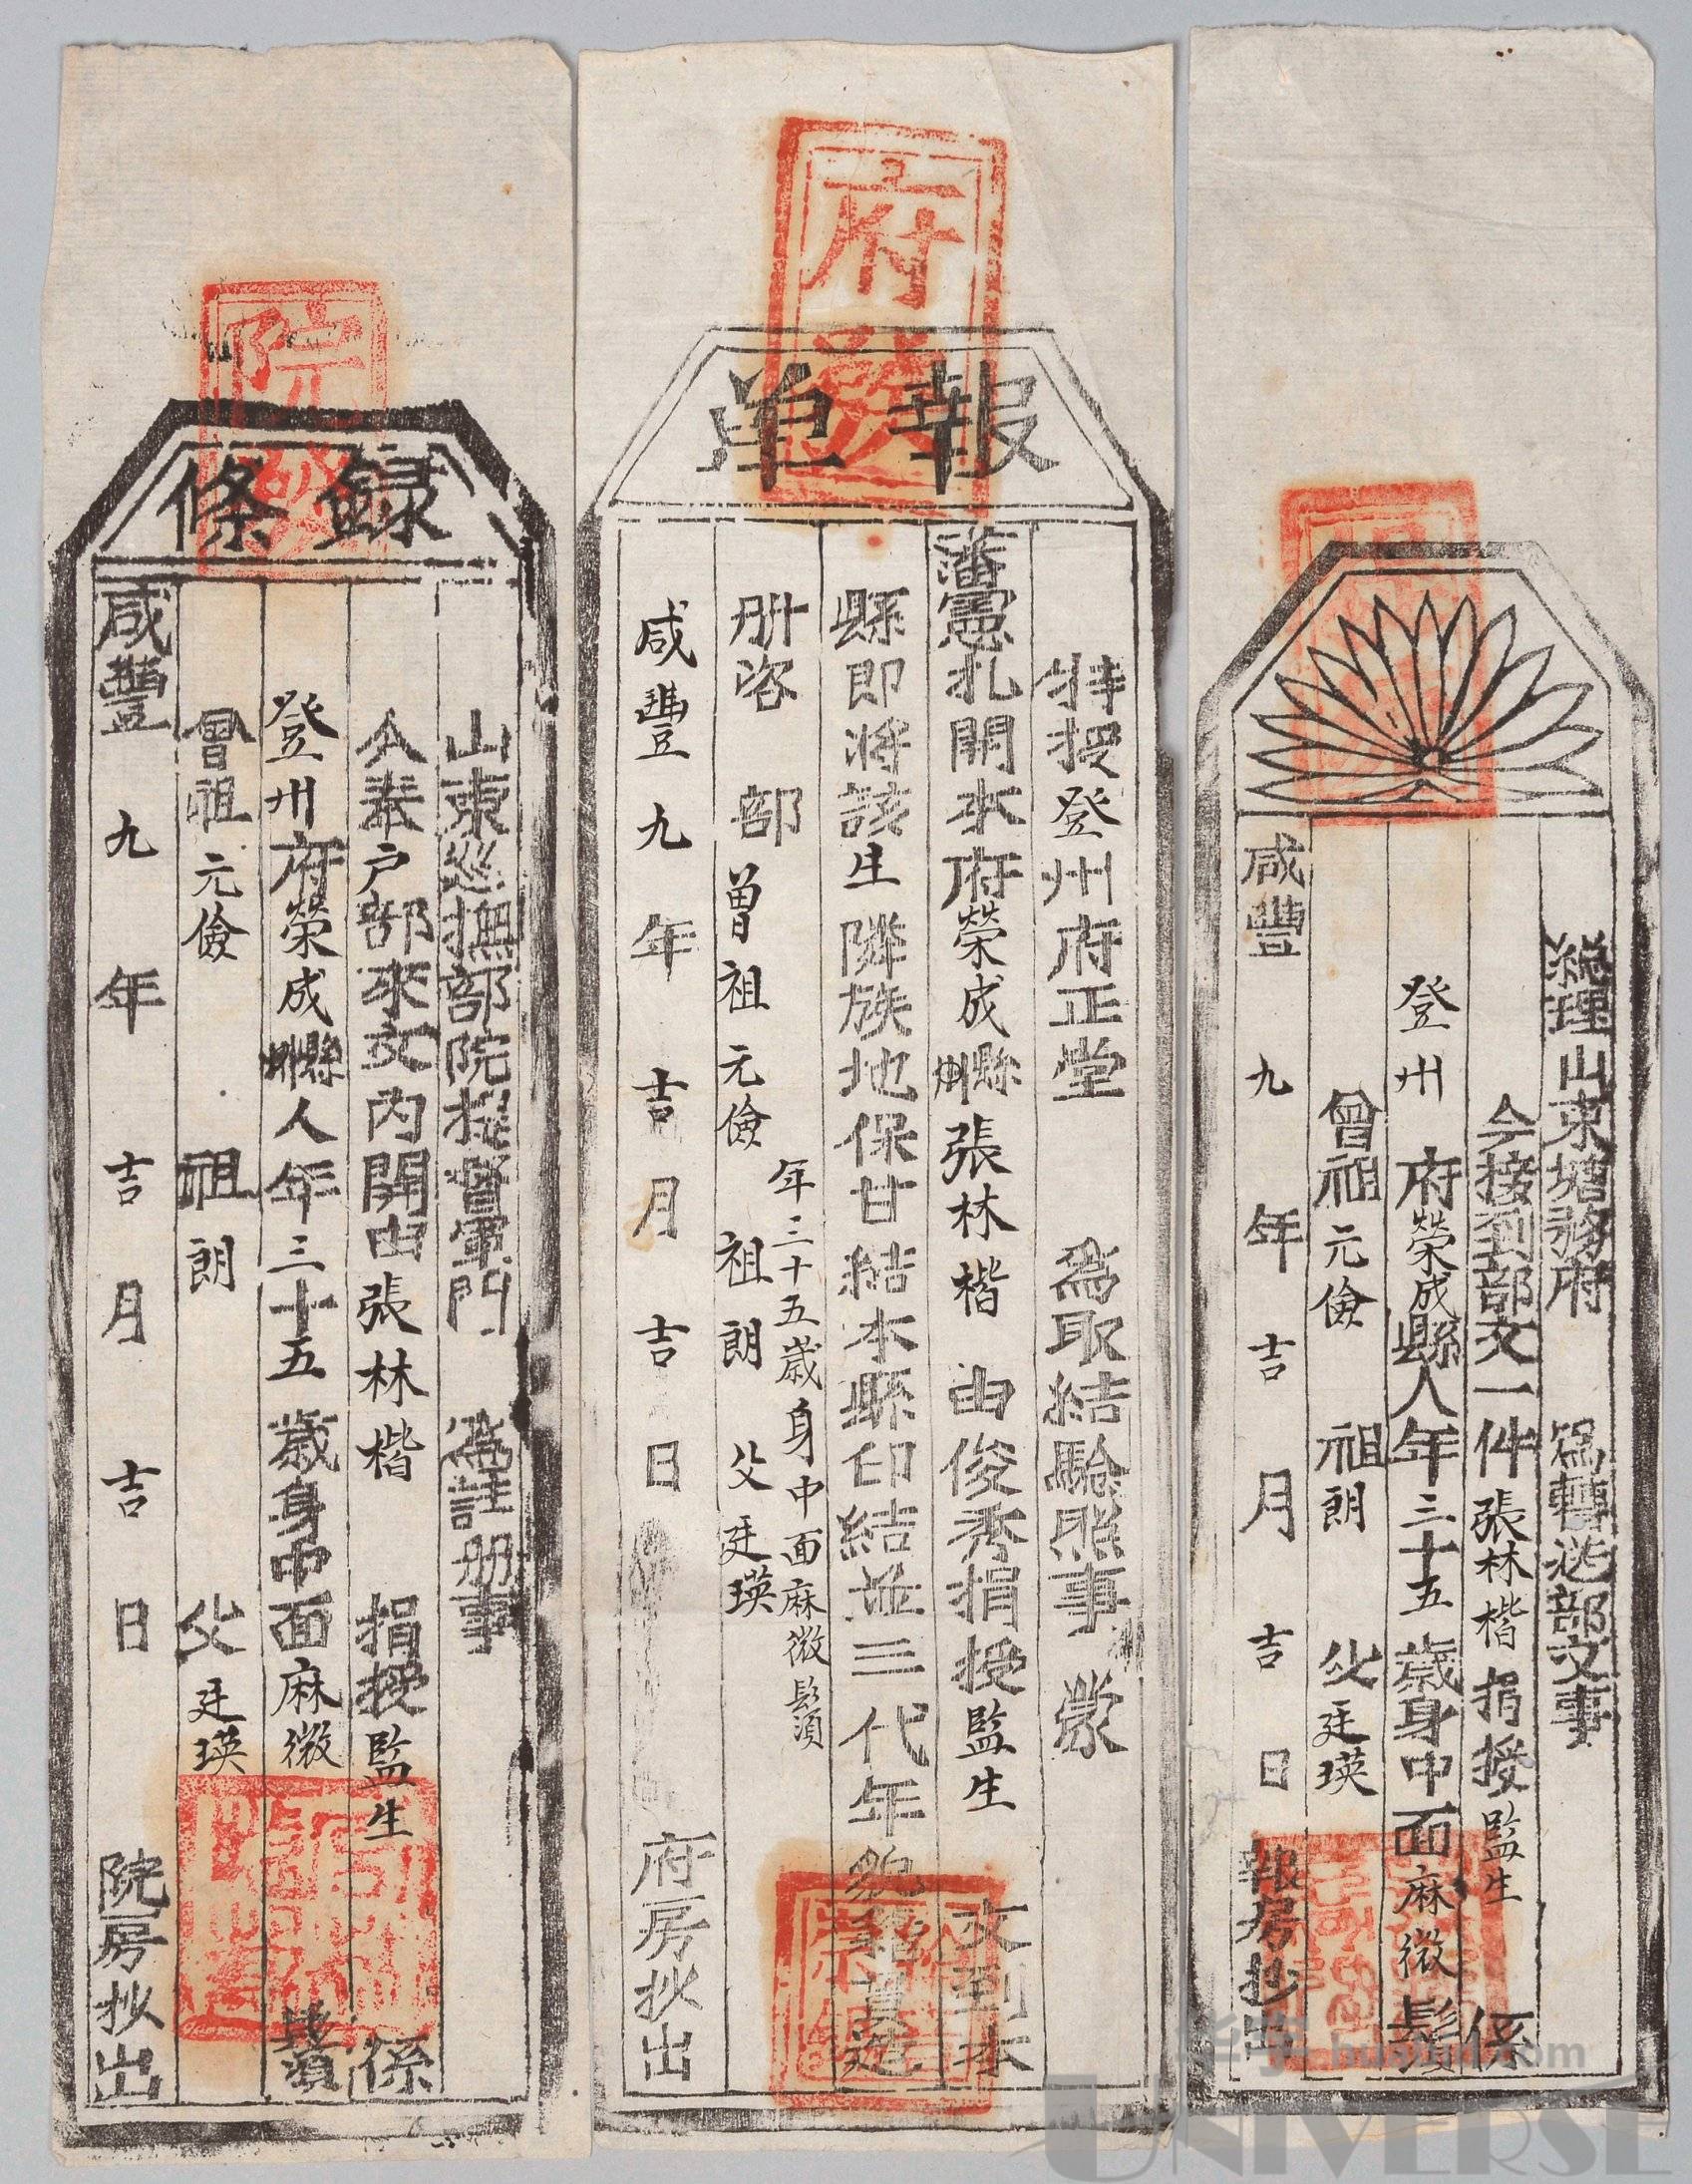 總理山東塘務府　為轉送部文事
今接到部文一件張林楷捐授監生　係
登州府榮成縣人年三十五歲身中面麻微鬚
曾祖元儉　祖朗　父廷瑛
咸豐九年吉月吉日　報房抄出
府
報單
特授登州府正堂　為取結驗照事　蒙
藩憲扎開本府榮成州縣張林楷　由俊秀捐授監生　文到本
縣即將該生隣族地保甘結本縣印結並三代年貌籍貫造
册咨　部　年三十五歲身中面麻微鬚
曾祖元儉　祖朗　父廷瑛
咸豐九年吉月吉日　府房抄出
院
錄條
山東巡撫部院提督軍門　為註册事
今奉户部來文內開由張林楷　捐授監生　係
登州府榮成州縣人年三十五歲身中面麻微鬚
曾祖元儉　祖朗　父廷瑛
咸豐九年吉月吉日　院房抄出
华宇 huashu.com
UNIVERSE